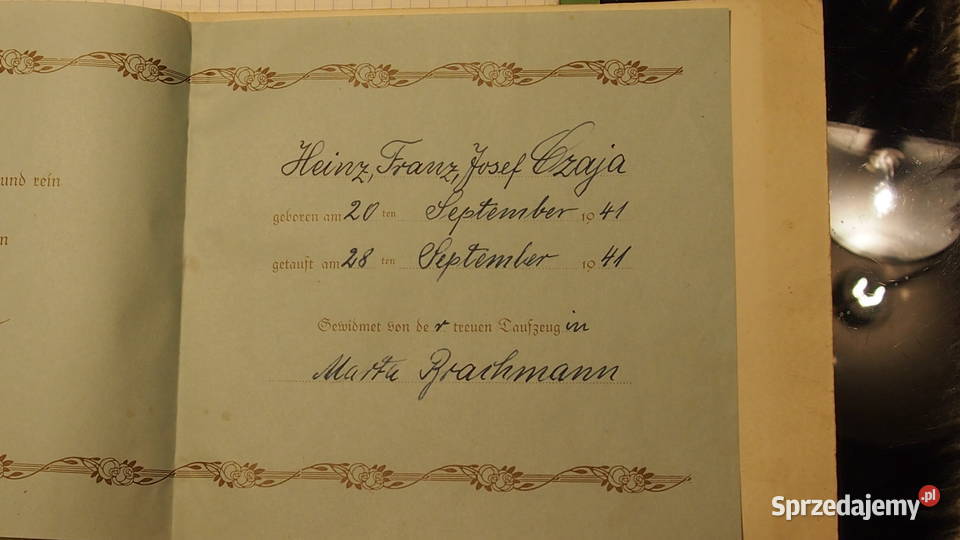 und rein
n
Heinz, Franz, Josef Czaja
geboren am 20 ten September 1941
getauft am 28 ten September 1941
Gewidmet von de r treuen Taufzeug in
Marta Brachmann
Sprzedajemy.pl